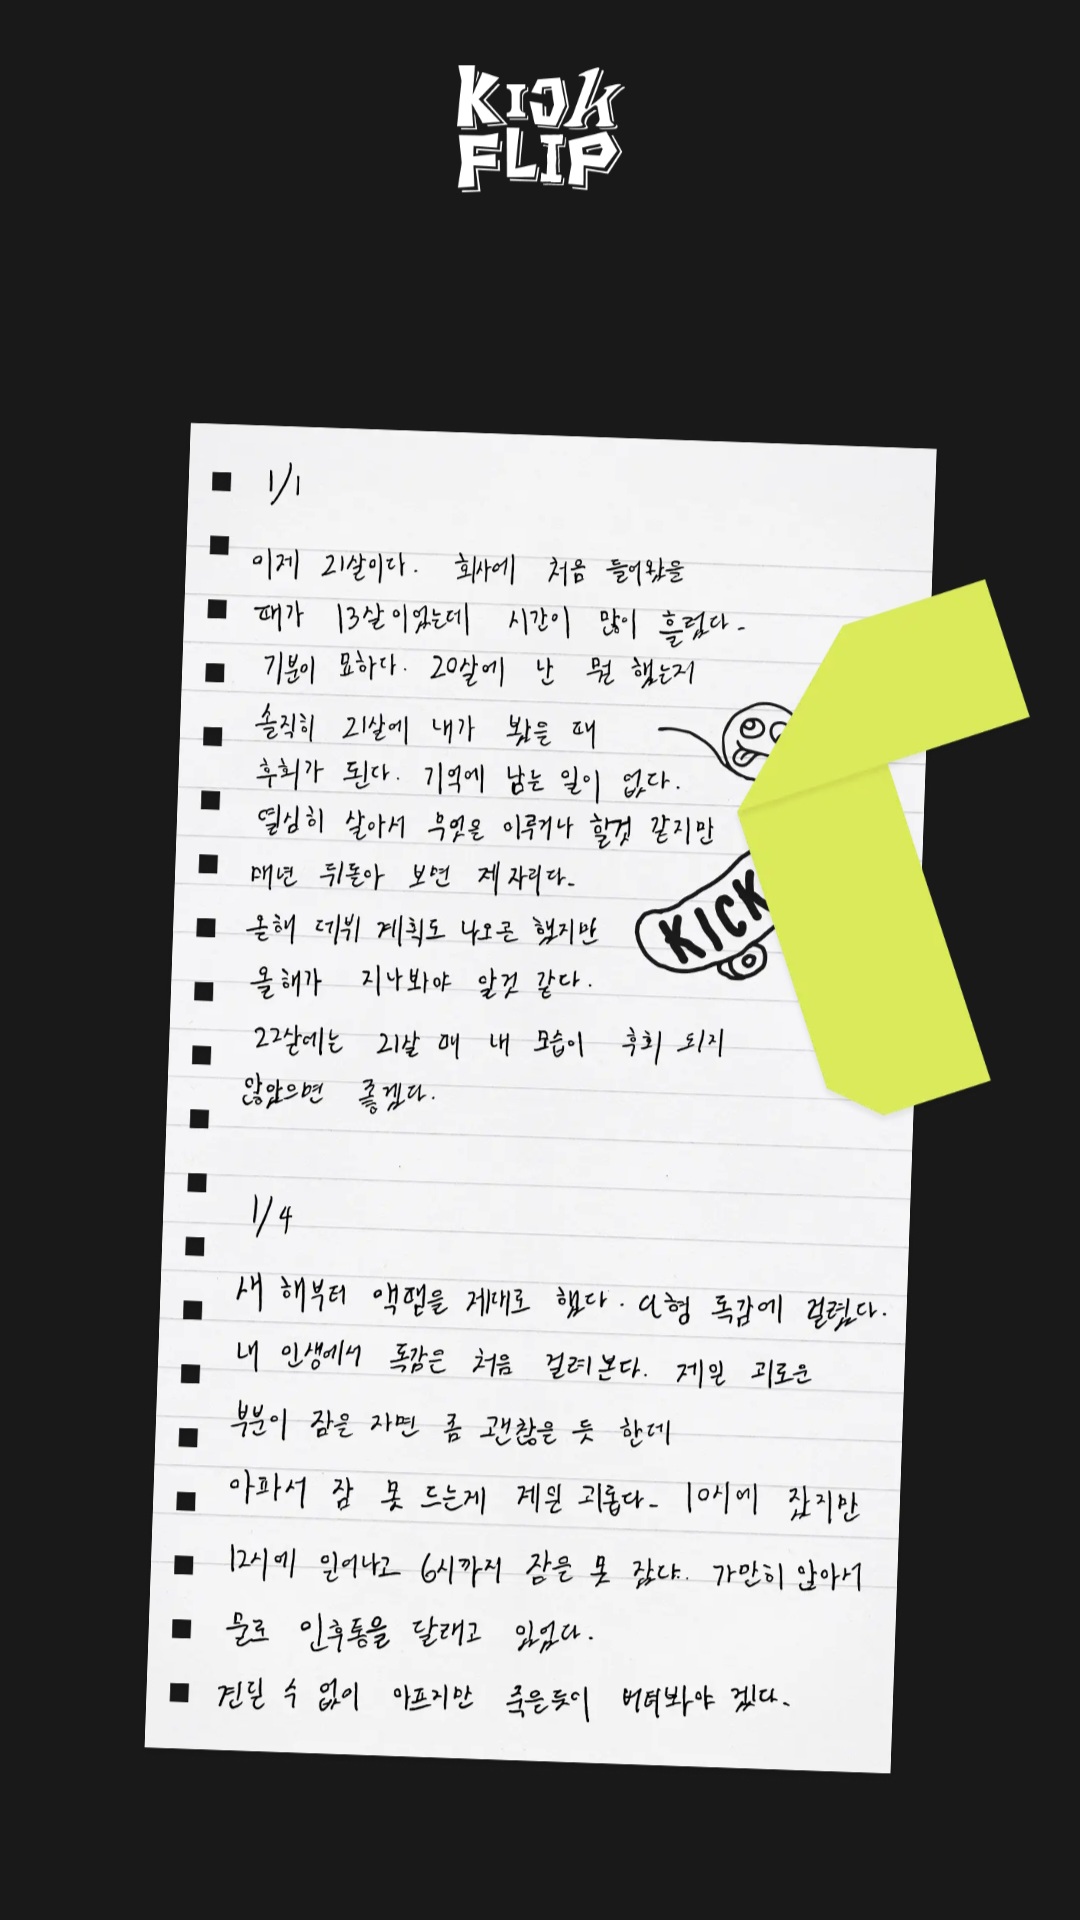 KICK
FLIP
1/1
이제 21살이다. 회사에 처음 들어왔을
때가 13살이었는데 시간이 많이 흘렀다.
기분이 묘하다. 20살에 난 뭔 했는지
솔직히 21살에 내가 봤을 때
후회가 된다. 기억에 남는 일이 없다.
열심히 살아서 무엇을 이루거나 할것 같지만
매년 뒤돌아 보면 제자리다.
올해 데뷔 계획도 나오곤 했지만
올해가 지나봐야 알것 같다.
22살에는 21살 때 내 모습이 후회 되지
않았으면 좋겠다.
KICK
1/4
새 해부터 액땜을 제대로 했다. a형 독감에 걸렸다.
내 인생에서 독감은 처음 걸려본다. 제일 괴로운
부분이 잠을 자면 좀 괜찮을 듯 한데
아파서 잠 못 드는게 제일 괴롭다. 10시에 잤지만
12시에 일어나고 6시까지 잠을 못 잤다. 가만히 앉아서
물로 인후통을 달래고 있었다.
견딜 수 없이 아프지만 죽은듯이 버텨봐야 겠다.